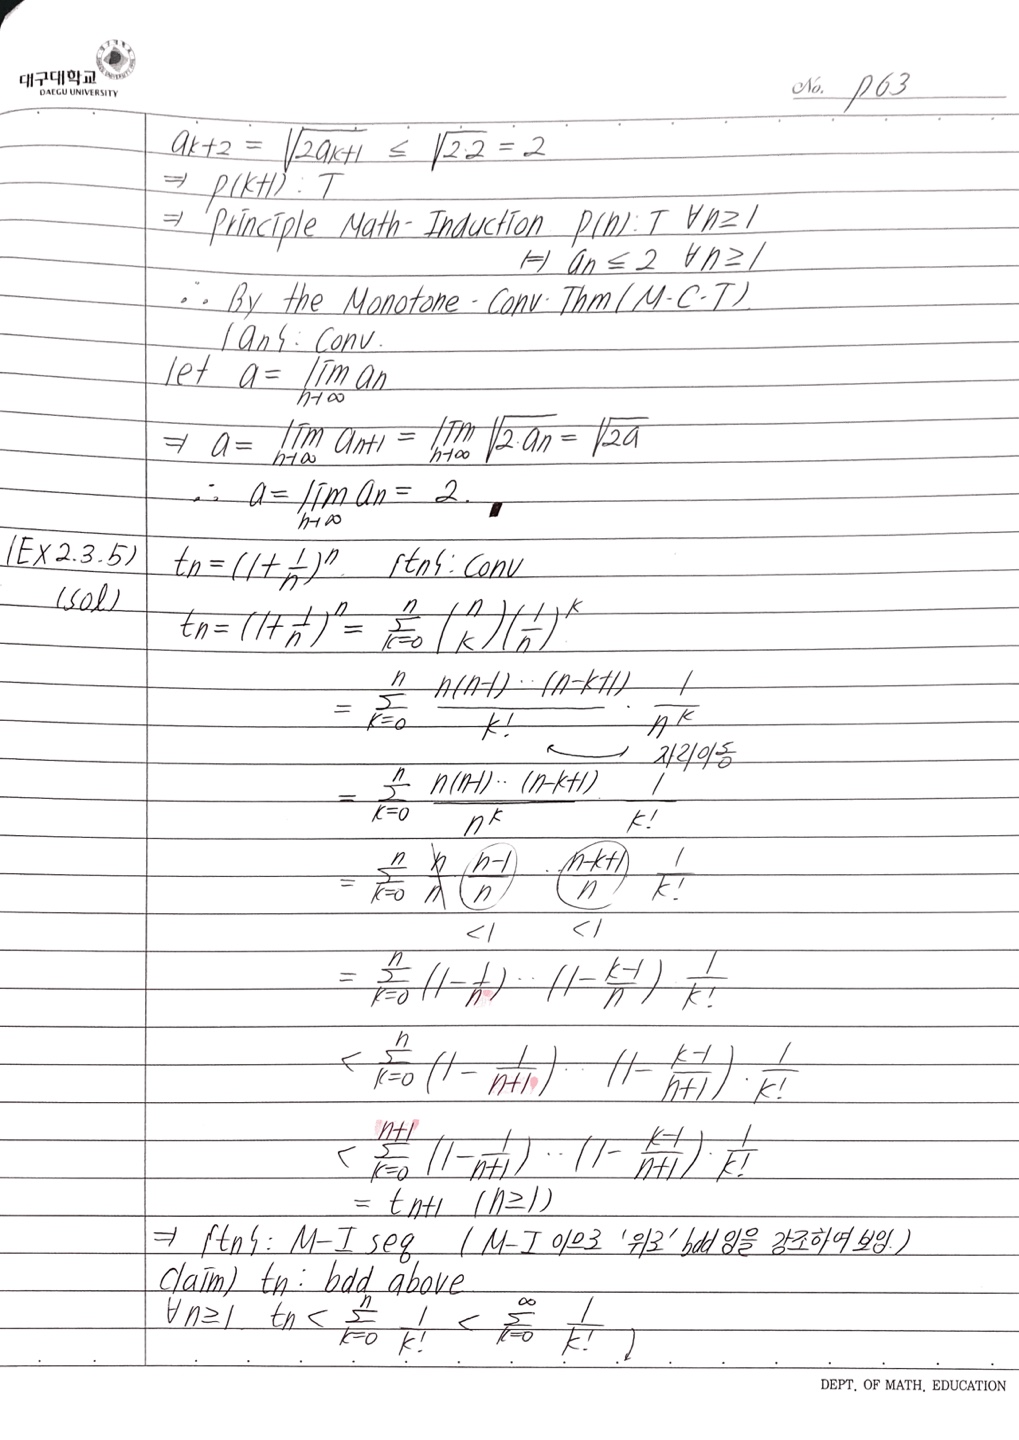 대구대학교
DAEGU UNIVERSITY
No. p63
ak+2 = √2ak+1 ≤ √2·2 = 2
⇒ p(k+1) : T
⇒ Principle Math-Induction p(n): T ∀n≥1
⇔ an ≤ 2 ∀n≥1
∴ By the Monotone-Conv·Thm(M·C·T)
{an}: Conv.
let a = lim n→∞ an
⇒ a = lim n→∞ an+1 = lim n→∞ √2·an = √2a
∴ a = lim n→∞ an = 2.
(EX 2.3.5) tn = (1+1/n)^n {tn}: Conv
(sol) tn = (1+1/n)^n = Σ k=0 n (n k)(1/n)^k
= Σ k=0 n n(n-1)··(n-k+1)/k! · 1/n^k
자리이동
= Σ k=0 n n(n-1)··(n-k+1)/n^k 1/k!
= Σ k=0 n n/n (n-1)/n ·· (n-k+1)/n 1/k!
<1 <1
= Σ k=0 n (1-1/n)··(1-(k-1)/n)·1/k!
< Σ k=0 n (1-1/(n+1))··(1-(k-1)/(n+1))·1/k!
< Σ k=0 n+1 (1-1/(n+1))··(1-(k-1)/(n+1))·1/k!
= tn+1 (n≥1)
⇒ {tn}: M-I seq (M-I 이므로 '위로' bdd 임을 강조하여 보임.)
Claim) tn: bdd above
∀n≥1 tn < Σ k=0 n 1/k! < Σ k=0 ∞ 1/k!
DEPT. OF MATH. EDUCATION